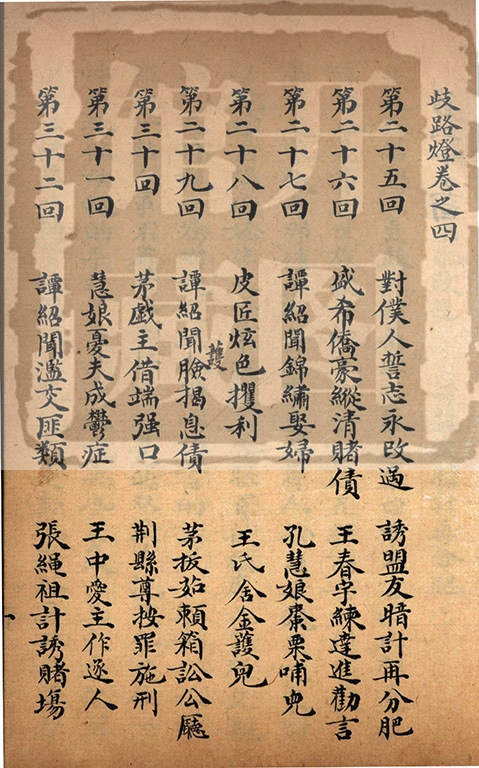 歧路燈卷之四
第二十五回 對僕人誓志永改過 誘盟友暗計再分肥
第二十六回 盛希僑豪縱清賭債 王春宇練達進勸言
第二十七回 譚紹聞錦繡娶婦 孔慧娘棗栗哺兒
第二十八回 皮匠炫色攫利 王氏舍金護兒
第二十九回 譚紹聞護臉揭息債 茅拔茹賴箱訟公廳
第三十回 茅戯主借端强口 荆縣尊按罪施刑
第三十一回 慧娘憂夫成鬱症 王中愛主作逐人
第三十二回 譚紹聞濫交匪類 張繩祖計誘賭場